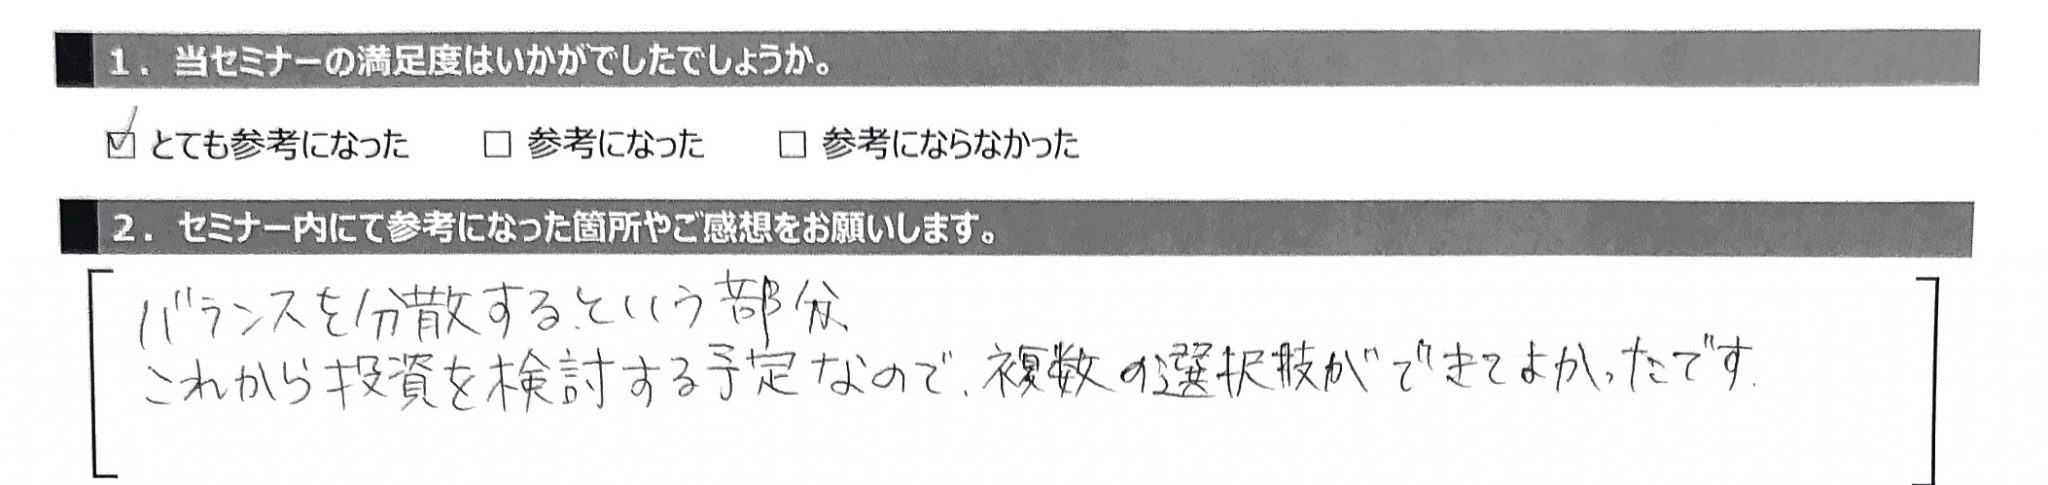 1. 当セミナーの満足度はいかがでしたでしょうか。
☑ とても参考になった □ 参考になった □ 参考にならなかった
2. セミナー内にて参考になった箇所やご感想をお願いします。
バランスを分散する、という部分、
これから投資を検討する予定なので、複数の選択肢ができてよかったです.